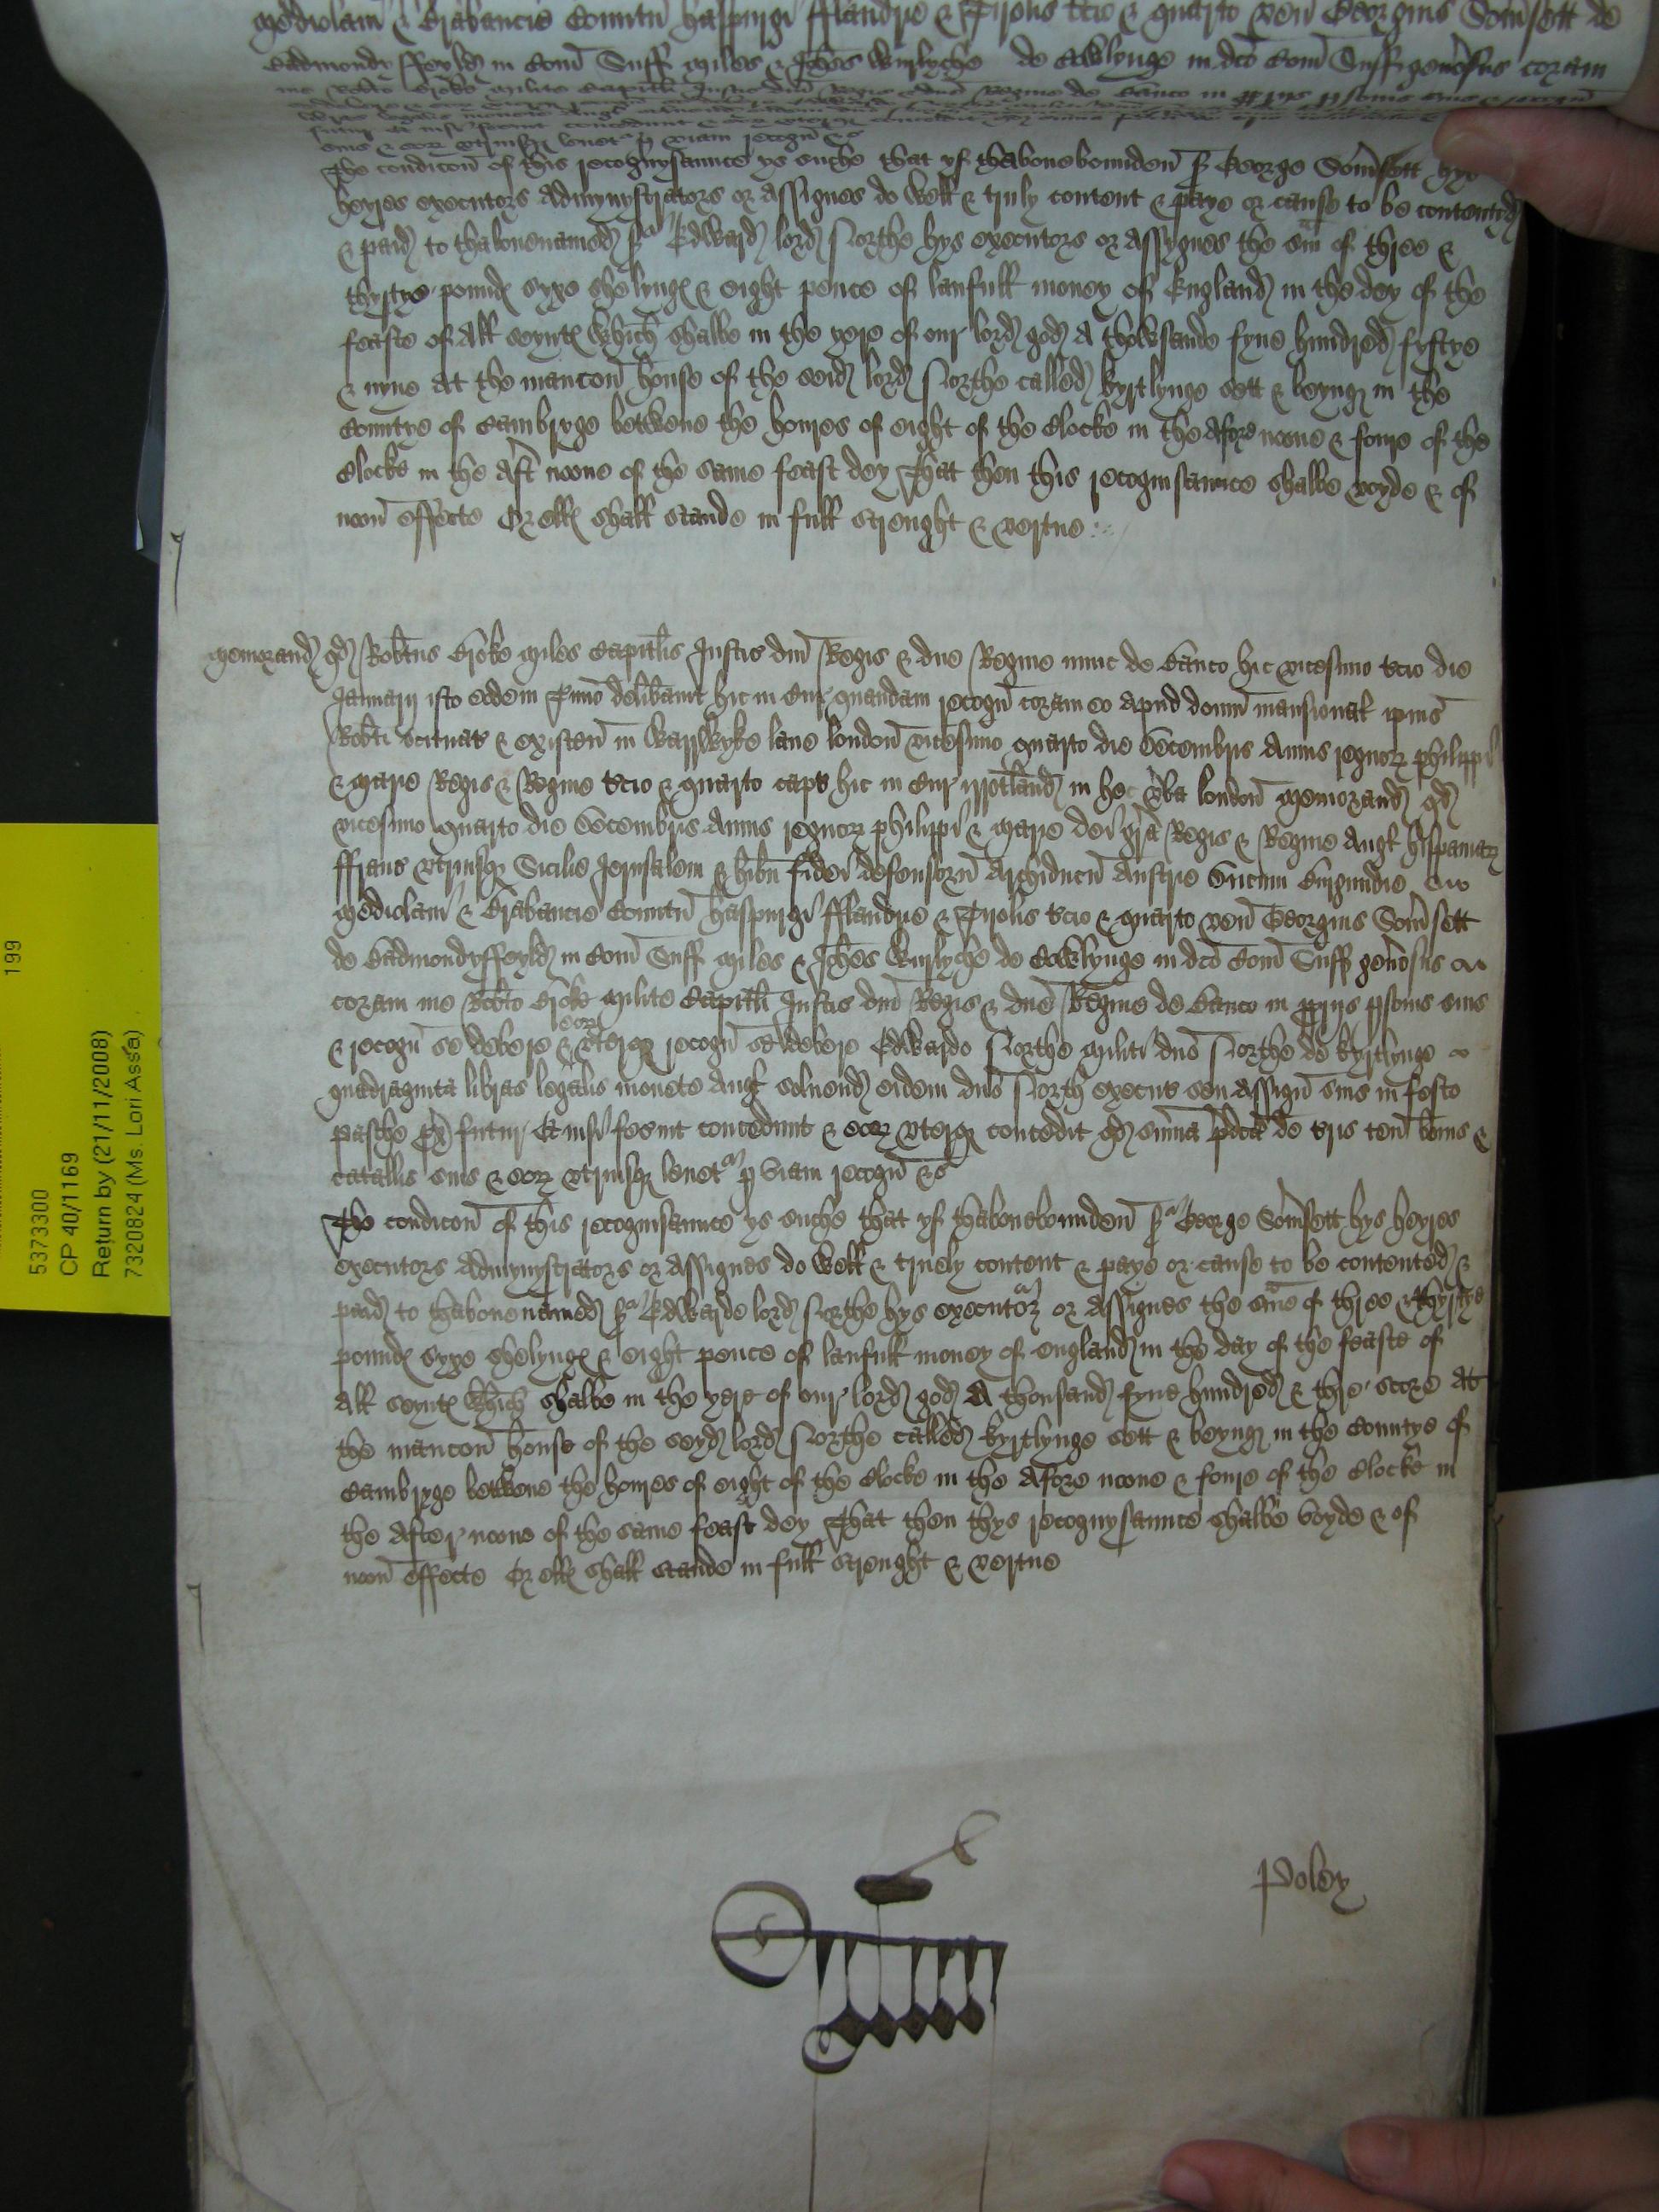 Mediolani & Brabancie Comitu Haspurgi Fflandrie & Tirolis tcio & quarto ven Georgius Somsett de
Badmondysffeyld in Com Suff miles & Johes Wurlyche de Cowlynge in dco Com Suff genosus coram
me Robto Broke milite Capitli Justic dni Regis & dne Regine de Banco in pprijs psonis suis & recogn
suis & eor utriusq levet p viam recogn &c
The condicon of this recognysaunce ys suche that yf thabovebounden Sr George Somsett hys
heyres executors Admynystrators or assignes do well & truly content & paye or cause to be contentyd
& paid to thabovenamed Sr Edward lord Northe hys executors or assygnes the sm of three &
thyrtye pound syxe shelyng & eight pence of laufull money of England in the dey of the
feaste of All seynt which shalbe in the yere of our lord god A thowsande fyve hundred fyftye
& nyne at the mancon house of the seid lord Northe called kyrtlynge sett & beyng in the
Countye of Cambryge betwene the houres of eight of the Clocke in the afore noone & foure of the
Clocke in the aft noone of the same feast dey That then this recognisaunce shalbe voyde & of
noon effecte Or ell shall stande in full strenght & vertue
Memorand qd Robtus Broke miles Capitlis Justic dni Regis & dne Regine nunc de Banco hic vicesimo tcio die
Januarij isto eodem Tmino delibavit hic in Cur quandam recogn coram eo apud domu mansional ipius
Robti scituat & existen in Warrwyke lane london vicesimo quarto die Decembris Annis regnor Philippi
& Marie Regis & Regine tcio & quarto capt hic in Cur irrotland in hec vba london Memorand qd
vicesimo quarto die Decembris Annis regnor Philippi & Marie dei gra Regis & Regine Angl hispaniar
Ffranc utriusq Sicilie Jerusalem & hibn fidei defensoru Archiducu Austrie Ducum Burgundie
Mediolani & Brabancie Comitu haspurgi Fflandrie & Tirolis tcio & quarto ven Georgius Somsett
de Badmondysffeyld in Com Suff miles & Johes Wurlyche de Cowlynge in dco Com Suff genosus
coram me Robto Broke milite Capitli Justic dni Regis & dne Regine de Banco in pprijs psonis suis
& recogn se debere & eor uterq recogn se debere Edwardo Northe militi dno Northe de kyrtlynge
quadraginta libras legalis monete Angl solvend eidem dno North execut seu assign suis in festo
pasche px futur Et nisi fecint concedunt & eor uterq concedit qd suma pdca de tris ten bonis &
catallis suis & eor utriusq levet p viam recogn &c
The condicon of this recognisaunce ys suche that yf thabovebounden Sr George Somsett hys heyres
executors Admynystrators or assignes do well & truely content & paye or cause to be contented &
paid to thabovenamed Sr Edwarde lord Northe hys executor or assignes the sme of three & thyrtye
pound syxe shelyng & eight pence of laufull money of england in the day of the feaste of
All seynt which shalbe in the yere of our lord god A thousand fyve hundred & thre score At
the mancon house of the seyd lord Northe called kyrtlynge sett & beyng in the Countye of
Cambryge betwene the houres of eight of the Clocke in the Afore noone & foure of the Clocke in
the After noone of the same feast dey That then thys recognysaunce shalbe voyde & of
noon effecte Or ell shall stande in full strenght & vertue
Poley
199
5373300
CP 40/1169
Return by (21/11/2008)
7320824 (Ms. Lori Assa)